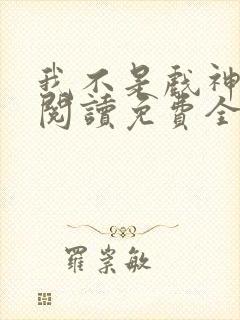 我不是戲神
閱讀免費全
羅崇敏